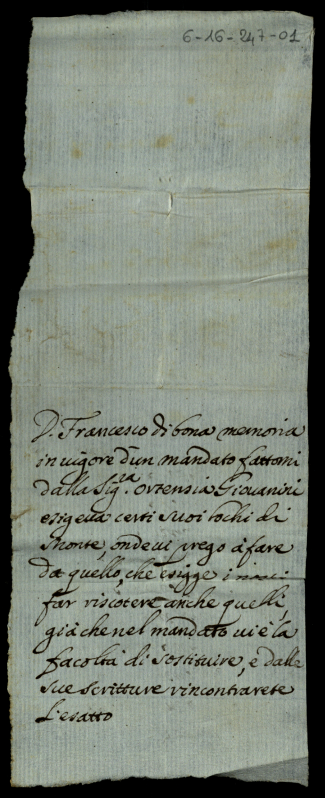 6-16-247-01
D. Francesco di bona memoria
in uigore d'un mandato fattomi
dalla Sig.ra Ortensia Giovanini
esigeua certi suoi lochi di
Monte, onde ui prego à fare
da quello, che esigge i miei
far riscotere anche quelli,
già che nel mandato ui è la
facoltà di sostituire, e dalle
sue scritture rincontrarete
l'esatto